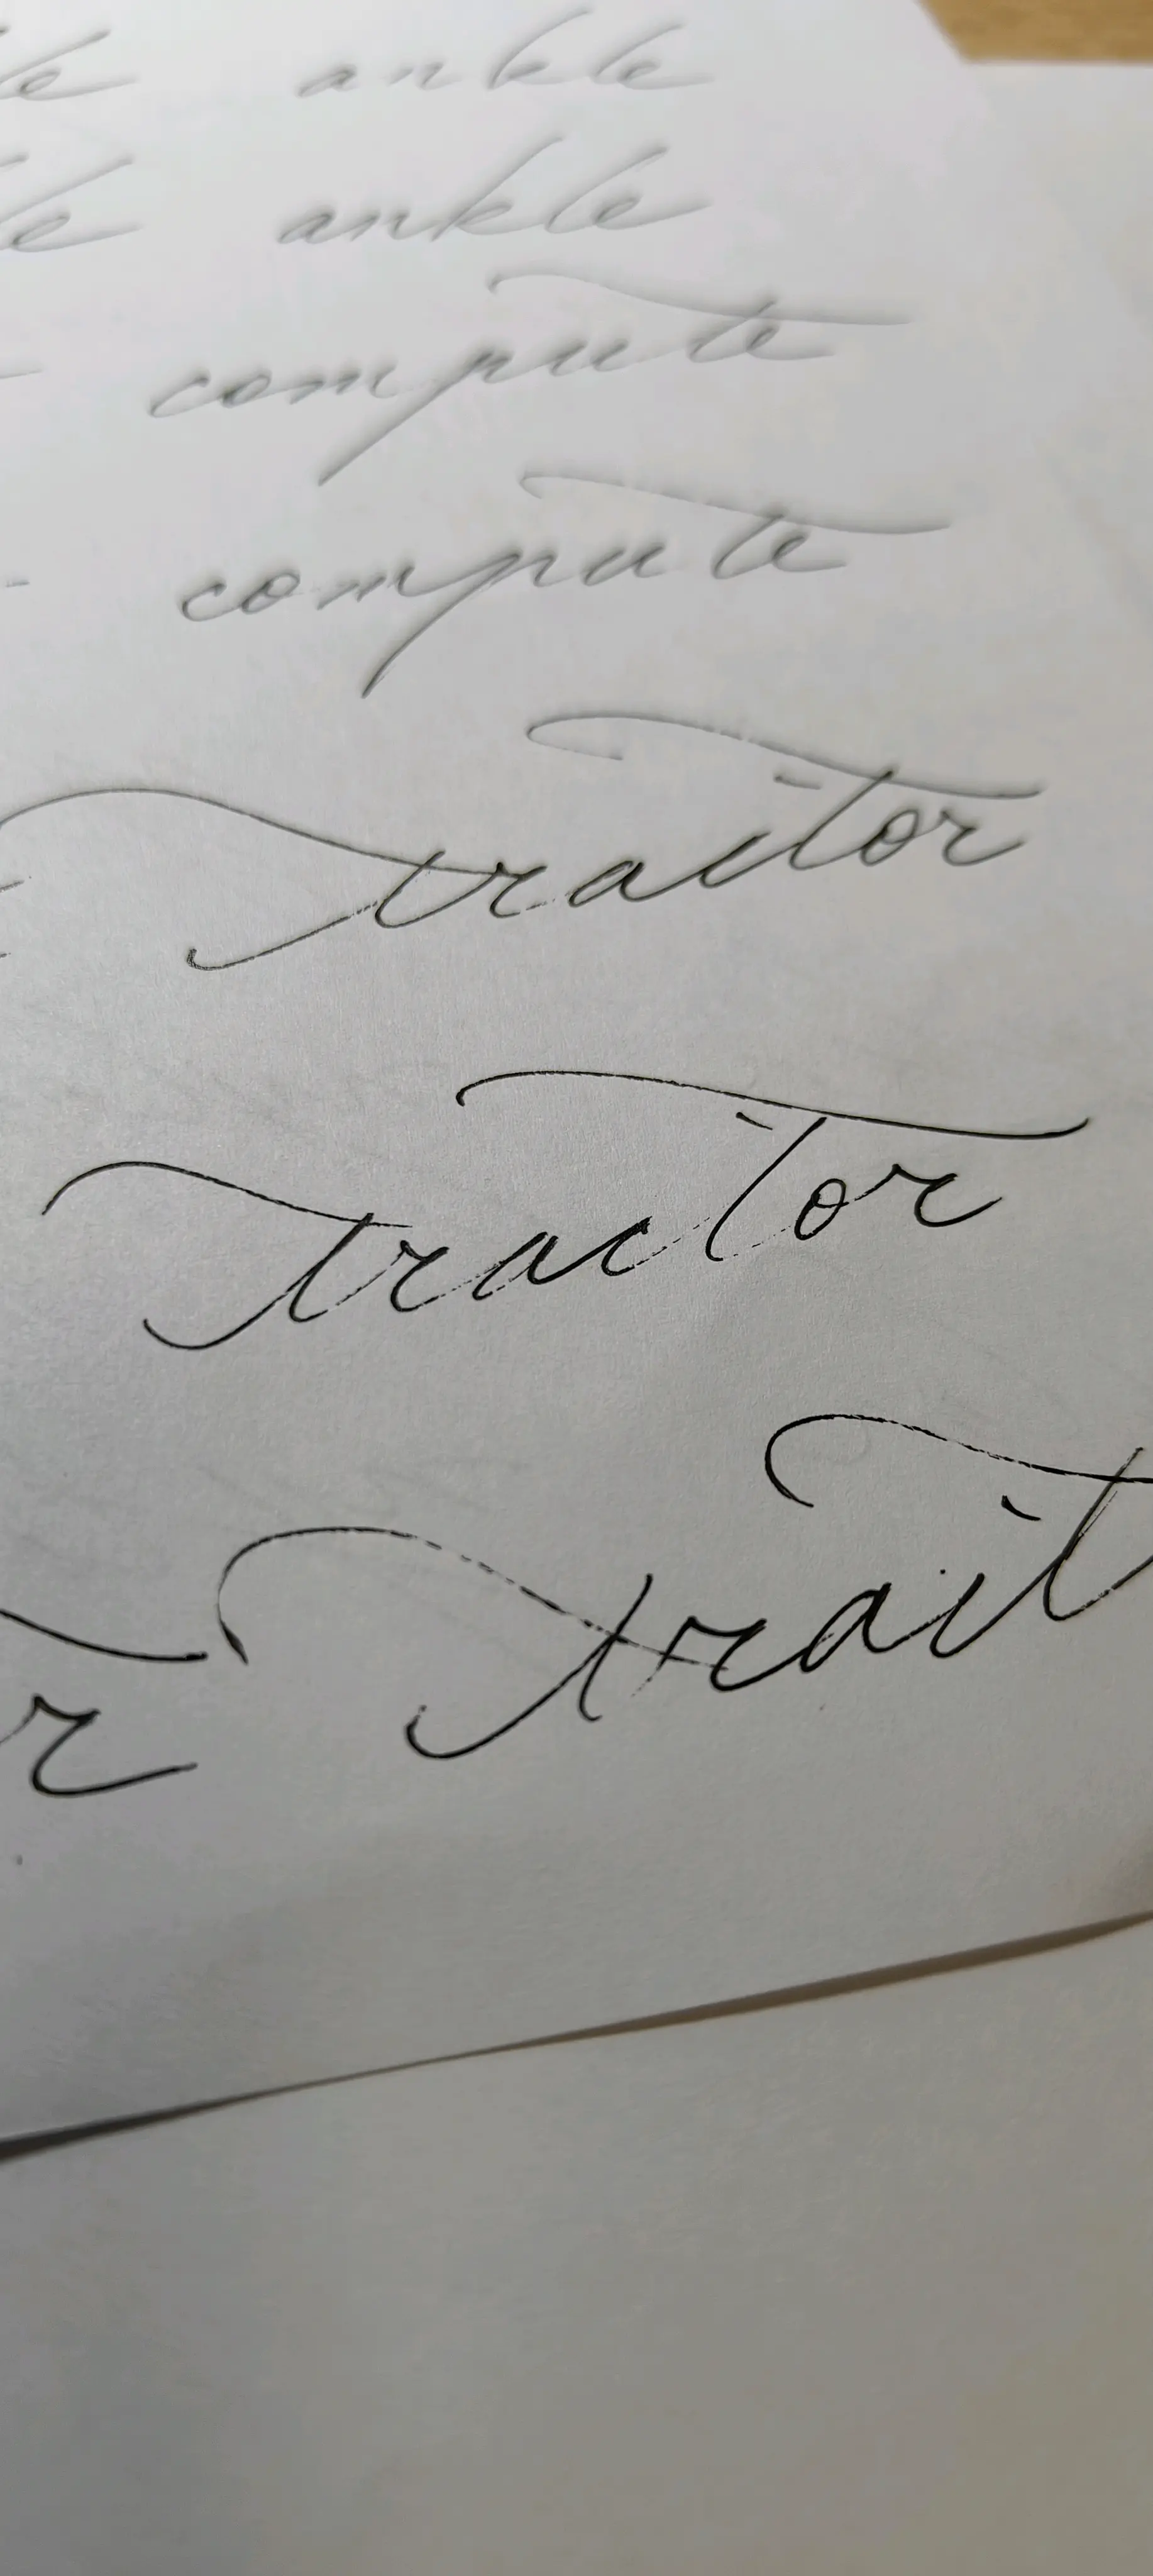 ankle
ankle
compute
compute
traitor
traitor
r trait